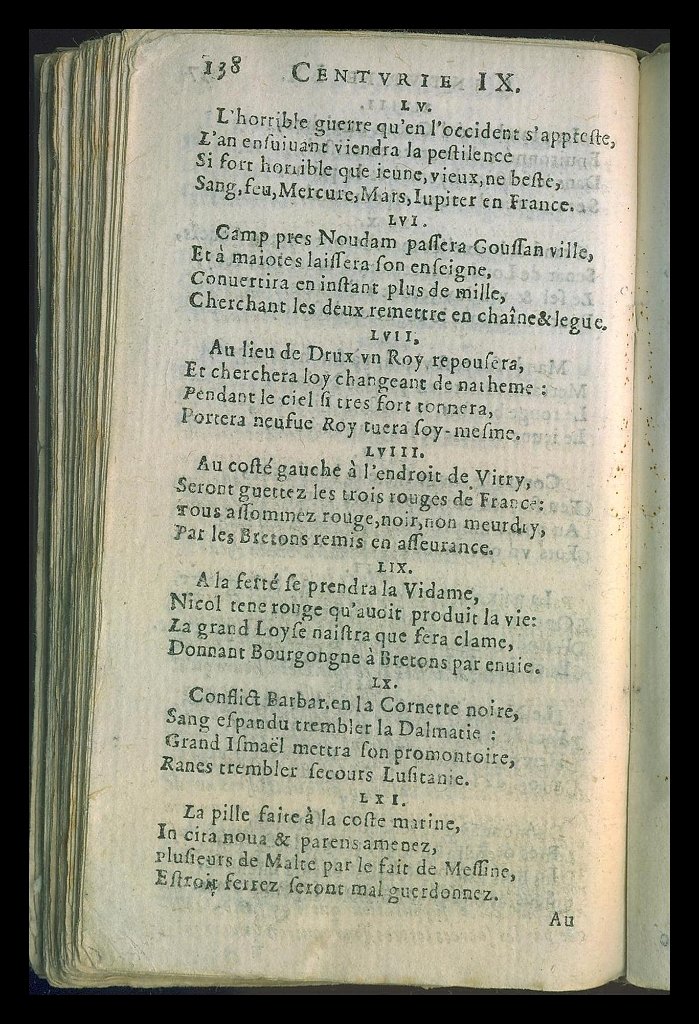 138 CENTVRIE IX.
LV.
L'horrible guerre qu'en l'occident s'appreste,
L'an ensuiuant viendra la pestilence
Si fort horrible que ieune, vieux, ne beste,
Sang, feu, Mercure, Mars, Iupiter en France.
LVI.
Camp pres Noudam passera Goussan ville,
Et à maiotes laissera son enseigne,
Conuertira en instant plus de mille,
Cherchant les deux remettre en chaîne & legue.
LVII.
Au lieu de Drux vn Roy reposera,
Et cherchera loy changeant de natheme :
Pendant le ciel si tres fort tonnera,
Portera neufue Roy tuera soy-mesme.
LVIII.
Au costé gauche à l'endroit de Vitry,
Seront guettez les trois rouges de France:
Tous assommez rouge, noir, non meurdry,
Par les Bretons remis en asseurance.
LIX.
A la ferté se prendra la Vidame,
Nicol tene rouge qu'auoit produit la vie:
La grand Loyse naistra que fera clame,
Donnant Bourgongne à Bretons par enuie.
LX.
Conflict Barbar. en la Cornette noire,
Sang espandu trembler la Dalmatie :
Grand Ismaël mettra son promontoire,
Ranes trembler secours Lusitanie.
LXI.
La pille faite à la coste marine,
In cita noua & parens amenez,
Plusieurs de Malte par le fait de Messine,
Estroit serrez seront mal guerdonnez.
Au